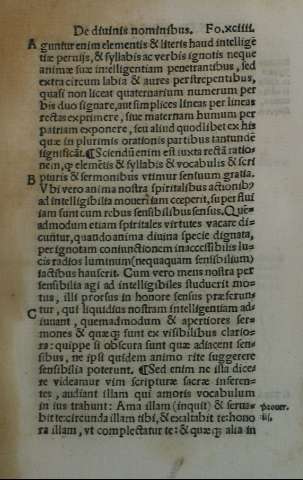 De diuinis nominibus. Fo.xciiii.
A guntur enim elementis & literis haud intellige
tiæ peruijs, & syllabis ac verbis ignotis neque
animæ suæ intelligentiam penetrantibus, sed
extra circum labia & aures perstrepentibus,
quasi non liceat quaternarium numerum per
bis duo signare, aut simplices lineas per lineas
rectas exprimere, siue maternam humum per
patriam exponere, seu aliud quodlibet ex his
quæ in plurimis orationis partibus tantundē
significāt. ¶Sciendū enim est iuxta rectā ratio-
nem, ꝙ elemētis & syllabis & vocabulis & scri
B pturis & sermonibus vtimur sensuum gratia.
Vbi vero anima nostra spiritalibus actionibꝰ
ad intelligibilia moueri iam cœperit, superflui
iam sunt cum rebus sensibilibus sensus. Quē-
admodum etiam spiritales virtutes vacare di-
cuntur, quando anima diuina specie dignata,
per ignotam coniunctionem inaccessibilis lu-
cis radios luminum (nequaquam sensibilium)
iactibus hauserit. Cum vero mens nostra per
sensibilia agi ad intelligibiles studuerit mo-
tus, illi prorsus in honore sensus præferun-
C tur, qui liquidius nostram intelligentiam ad-
iuuant, quemadmodum & apertiores ser-
mones & quæqȝ sunt ex visibilibus clario-
ra: quippe si obscura sunt quæ adiacent sen-
sibus, ne ipsi quidem animo rite suggerere
sensibilia poterunt. ¶Sed enim ne ista dice-
re videamur vim scripturæ sacræ inferen-
tes, audiant illam qui amoris vocabulum
in ius trahunt: Ama illam (inquit) & serua- prouer.
bit te: circunda illam tibi, & exaltabit te: hono iiij.
ra illam, vt complectatur te: & quæqȝ alia in